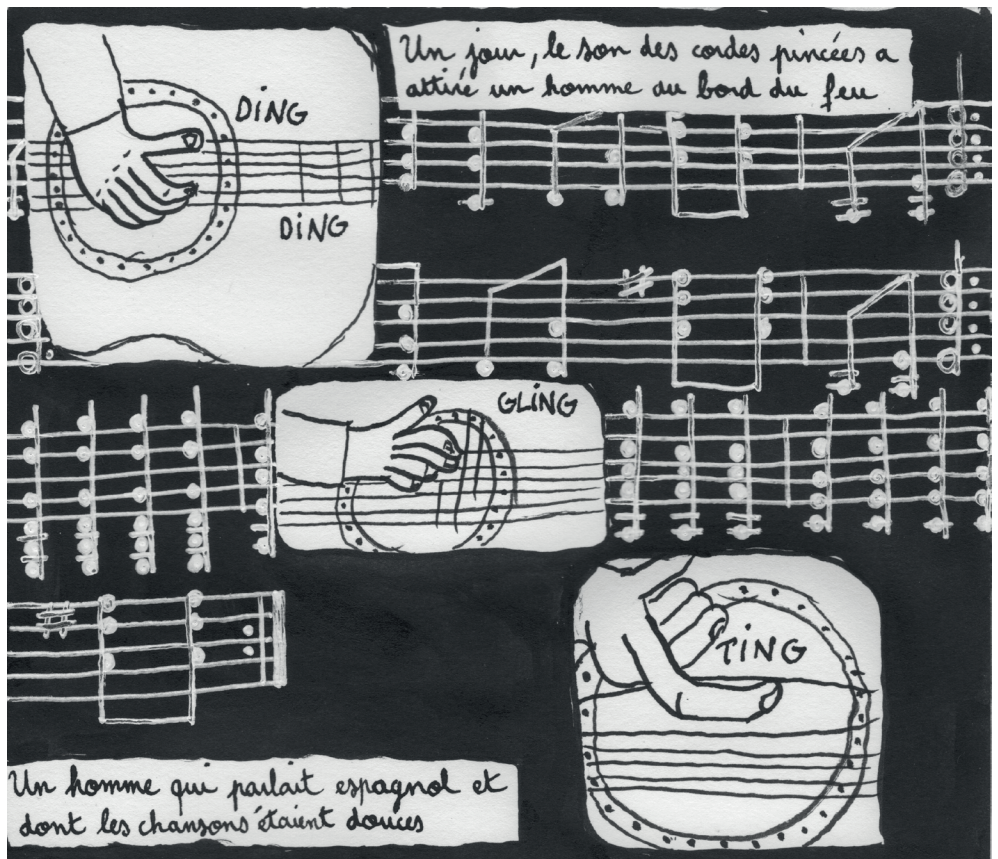 Un jour, le son des cordes pincées a
attiré un homme au bord du feu
DiNG
DiNG
GLiNG
TiNG
Un homme qui parlait espagnol et
dont les chansons étaient douces